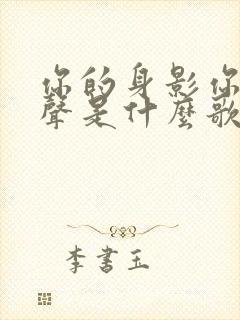 你的身影你
聲是什麼歌
李書玉